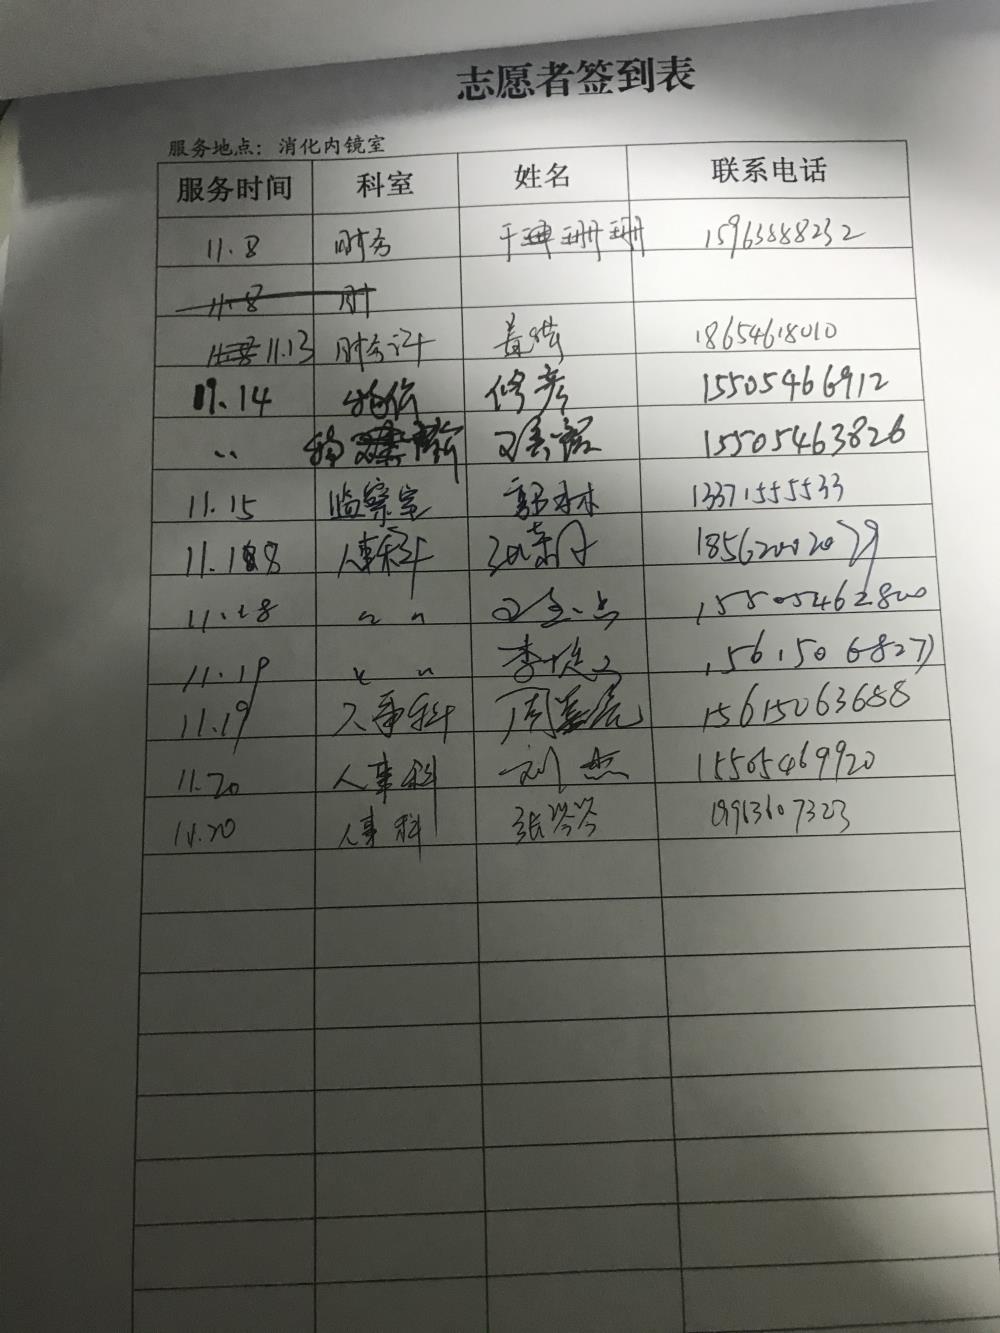 志愿者签到表
服务地点：消化内镜室
服务时间 科室 姓名 联系电话
11.8 财务 于珊珊 15963888232
11.8 财
11.13 财务科 18654618010
11.14 修彦 15505466912
〃 15505463826
11.15 监察室 郭林林 13371555533
11.18 人事科 18562002079
11.18 〃 〃 15505462800
11.19 〃 〃 李 15615068277
11.19 人事科 周 15615063688
11.20 人事科 刘杰 15505469920
11.20 人事科 张岑岑 19963607323